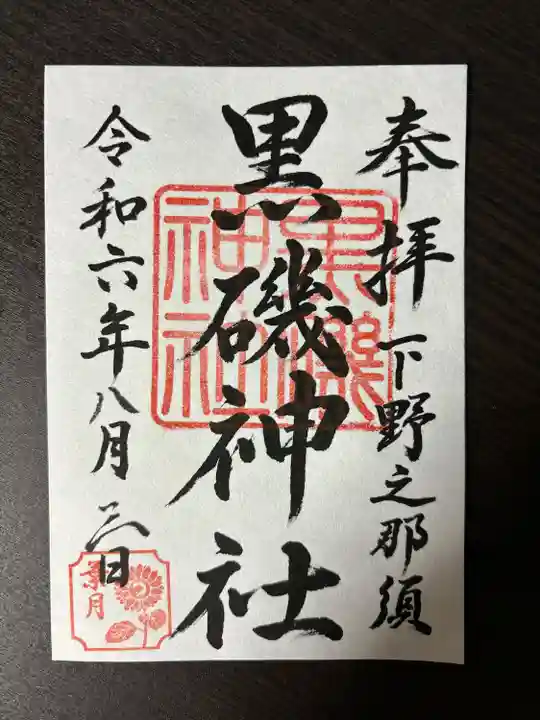 奉拝 下野之那須
黒磯神社
令和六年八月三日
黒磯神社
葉月